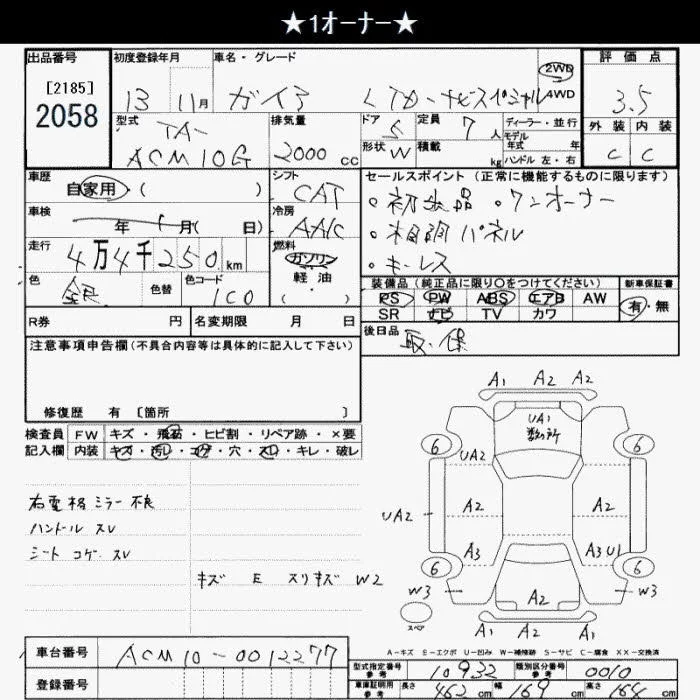 ★1オーナー★
出品番号 初度登録年月 車名・グレード 評価点
[2185]
2058
13 11月 ガイア 2WD
4WD
3.5
型式 排気量 ドア 5 定員 7 人 ディーラー・並行
モデル
年式 年
外装 内装
TA-
ACM10G 2000 cc 形状 W 積載 kg ハンドル 左・右 C C
車歴 シフト セールスポイント (正常に機能するものに限ります)
自家用 ( ) CAT
・ワンオーナー
車検 年 月( 日) 冷房 AAC
・木目調パネル
走行 4万4千250km 燃料 ガソリン
・キーレス
軽・油
( )
色 銀 色替 色コード 1C0
装備品 (純正品に限り○をつけてください) 新車保証書
PS PW ABS エアB AW 有・無
SR ナビ TV カワ
R券 円 名変期限 月 日
後日品 取・保
注意事項申告欄 (不具合内容等は具体的に記入して下さい)
修復歴 有 [箇所 ]
検査員 FW キズ・飛石・ヒビ割・リペア跡・×要
記入欄 内装 キズ・汚レ・コゲ・穴・スレ・キレ・破レ
右電格ミラー不良
ハンドル スレ
シート コゲ、スレ
キズ E スリキズ W2
A1 A2 A2
UA1
数ヶ所
6 6
UA2
UA2 A2 A2
A3 A3 U1
6 6
W3 A2 W3
スペア
A1 A2 A2
A-キズ E-エクボ U-凹み W-補修跡 S-サビ C-腐食 XX-交換済
車台番号 ACM10-0012277
登録番号
型式指定番号 参考 10932 類別区分番号 参考 0010
車庫証明用 参考 長さ 462 cm 幅 169 cm 高さ 164 cm